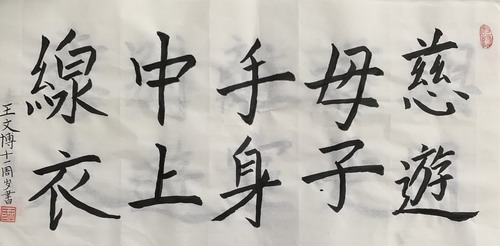 慈母手中線
遊子身上衣
王文博十一周岁書